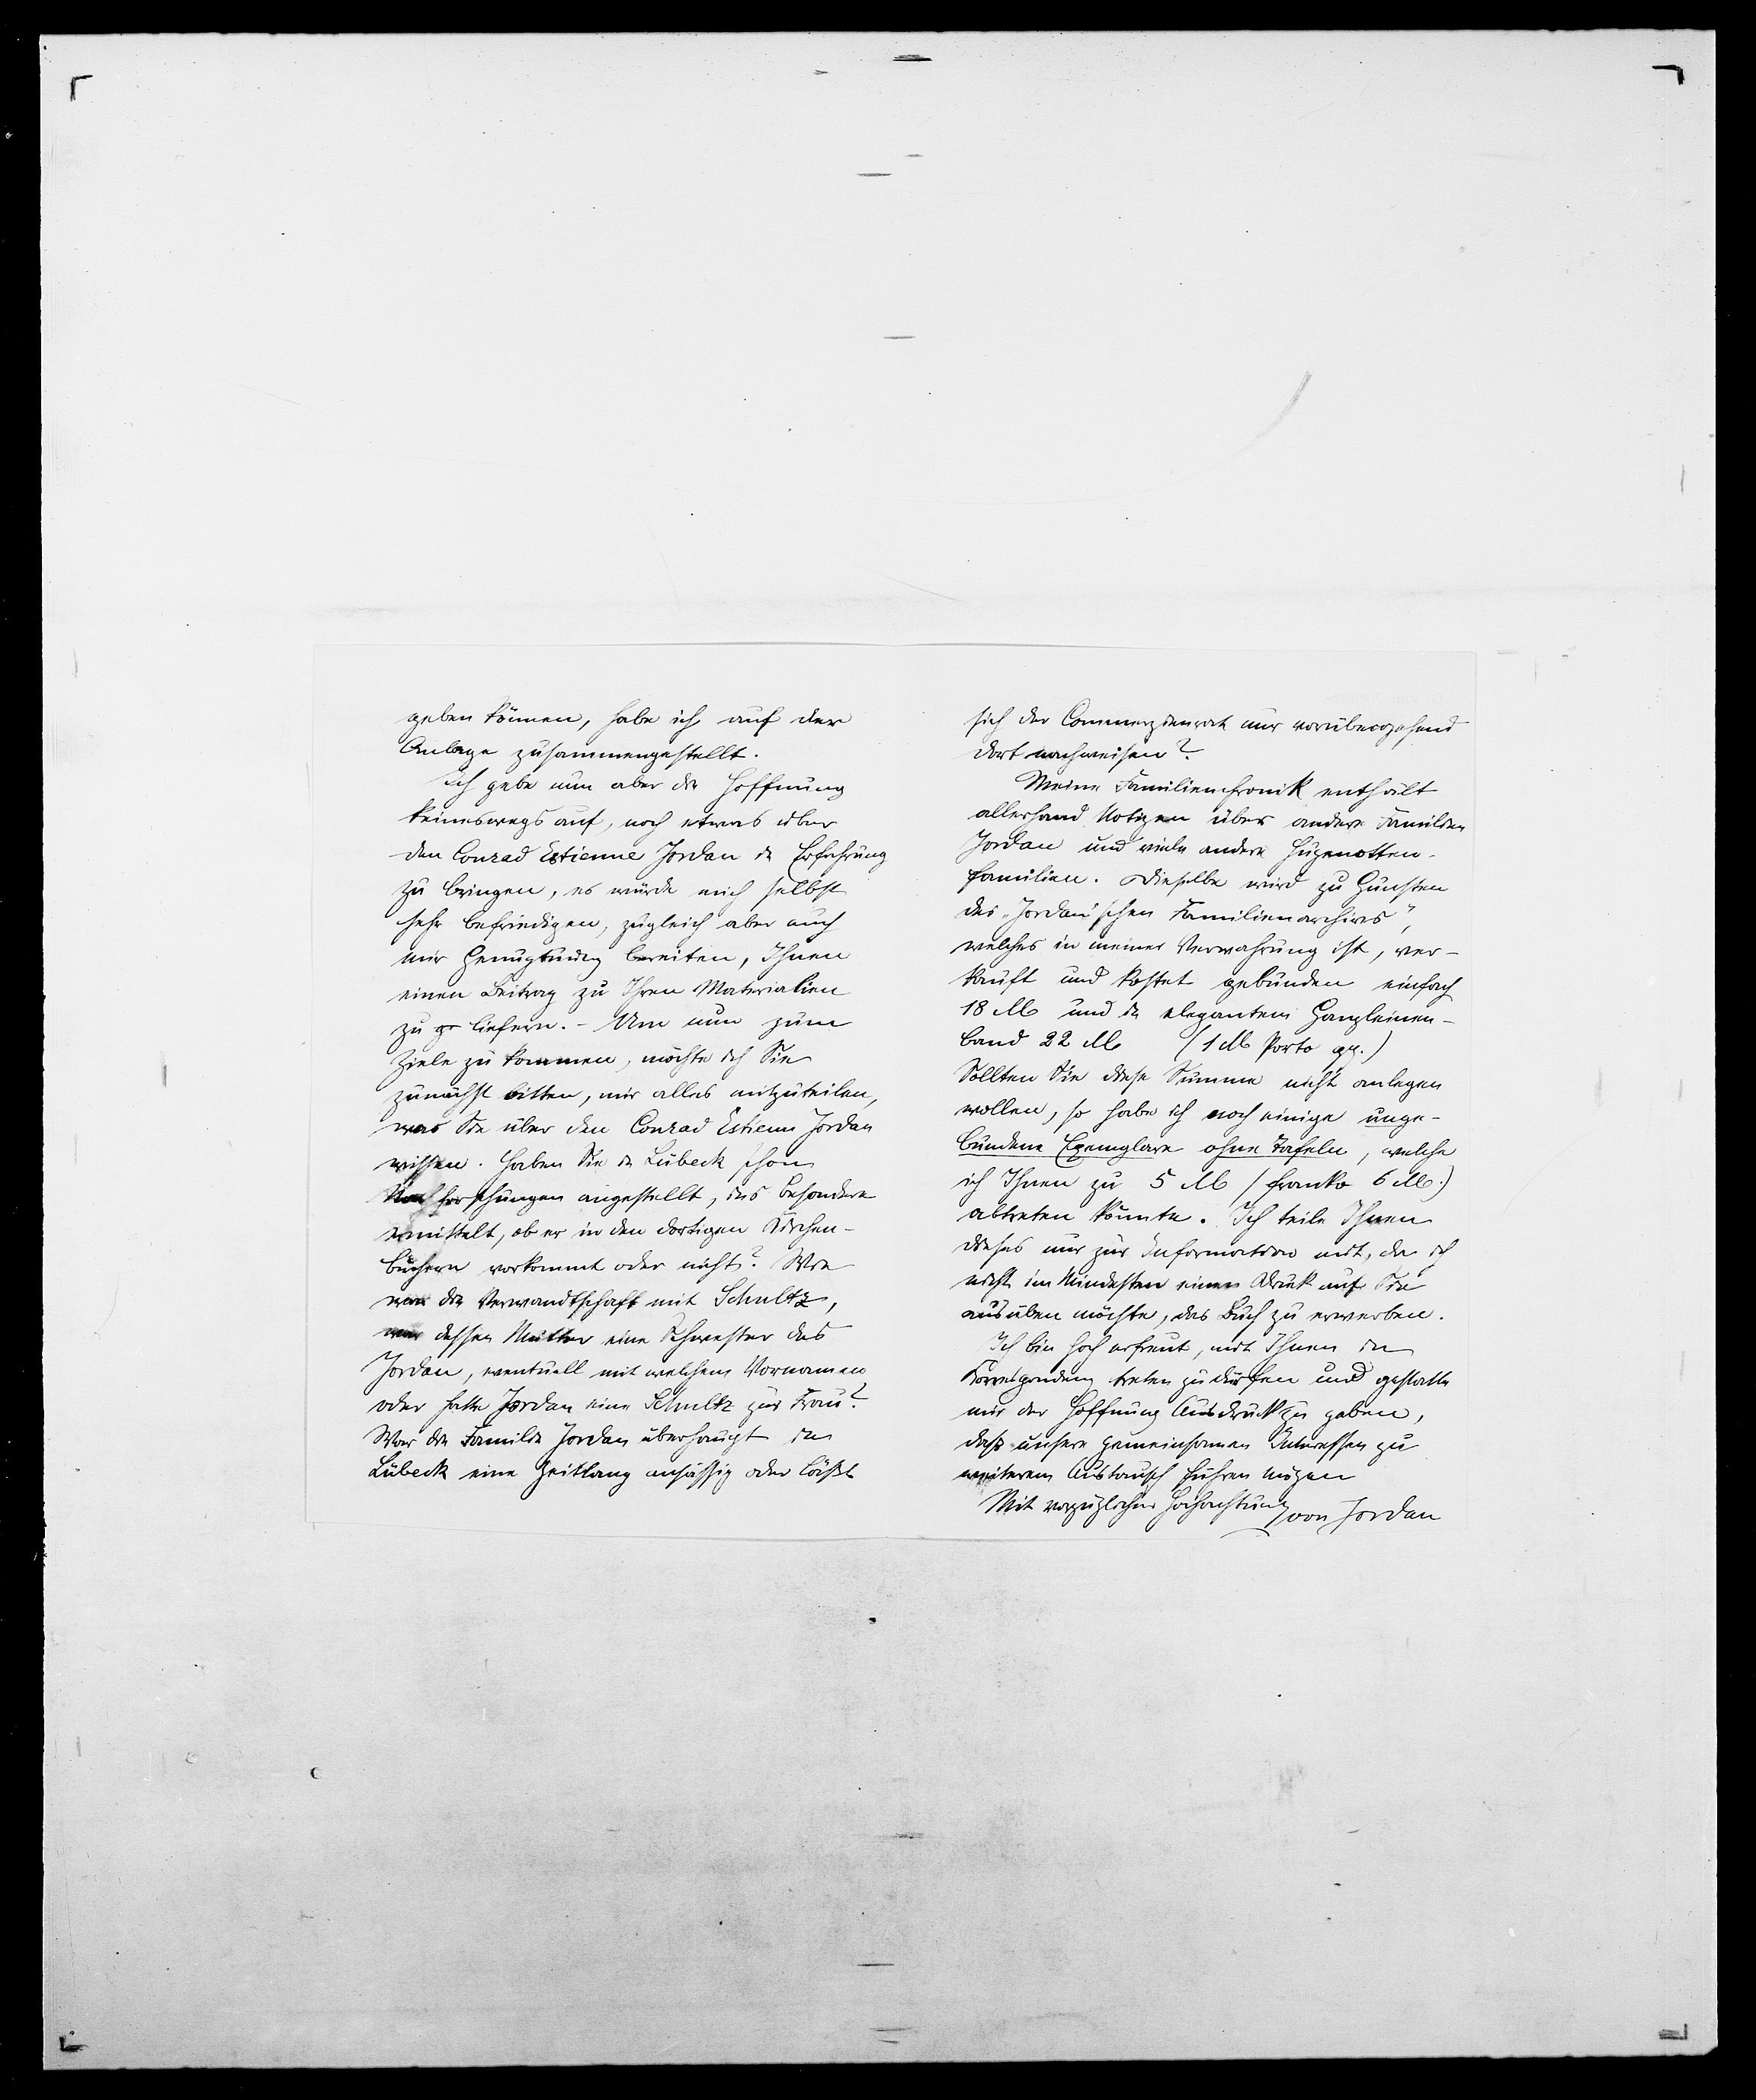 geben können, habe ich auf der
Anlage zusammengestellt.
Ich gebe nun aber die Hoffnung
keineswegs auf, noch etwas über
den Conrad Estienne Jordan in Erfahrung
zu bringen, es würde mich selbst
sehr befriedigen, zugleich aber auch
mir Genugtuung bereiten, Ihnen
einen Beitrag zu Ihren Materialien
zu liefern. - Um nun zum
Ziele zu kommen, möchte ich Sie
zunächst bitten, mir alles mitzuteilen,
was Sie über den Conrad Estienne Jordan
wissen. Haben Sie in Lübeck schon
Nachforschungen angestellt, ins besondere
ermittelt, ob er in den dortigen Kirchen-
büchern vorkommt oder nicht? Wie
war die Verwandtschaft mit Schultz,
war dessen Mutter eine Schwester des
Jordan, eventuell mit welchem Vornamen
oder hatte Jordan eine Schultz zur Frau?
War die Familie Jordan überhaupt in
Lübeck eine Zeitlang ansässig oder läßt
sich der Commerzienrat nur vorübergehend
dort nachweisen?
Meine Familienchronik enthält
allerhand Notizen über andere Familien
Jordan und viele andere Hugenotten-
familien. Dieselbe wird zu Gunsten
des "Jordan'schen Familienarchives",
welches in meiner Verwahrung ist, ver-
kauft und kostet gebunden einfach
18 M und in elegantem Ganzleinen-
band 22 M (1 M Porto)
Sollten Sie diese Summe nicht anlegen
wollen, so habe ich noch einige unge-
bundene Exemplare ohne Tafeln, welche
ich Ihnen zu 5 M (franko 6 M.)
abtreten könnte. Ich teile Ihnen
dieses nur zur Information mit, da ich
nicht im Mindesten einen Druck auf Sie
ausüben möchte, das Buch zu erwerben.
Ich bin hoch erfreut, mit Ihnen in
Korrespondenz treten zu dürfen und gestatte
mir der Hoffnung Ausdruck zu geben,
daß unsere gemeinsamen Interessen zu
weiterem Austausch führen mögen
Mit vorzüglicher Hochachtung von Jordan